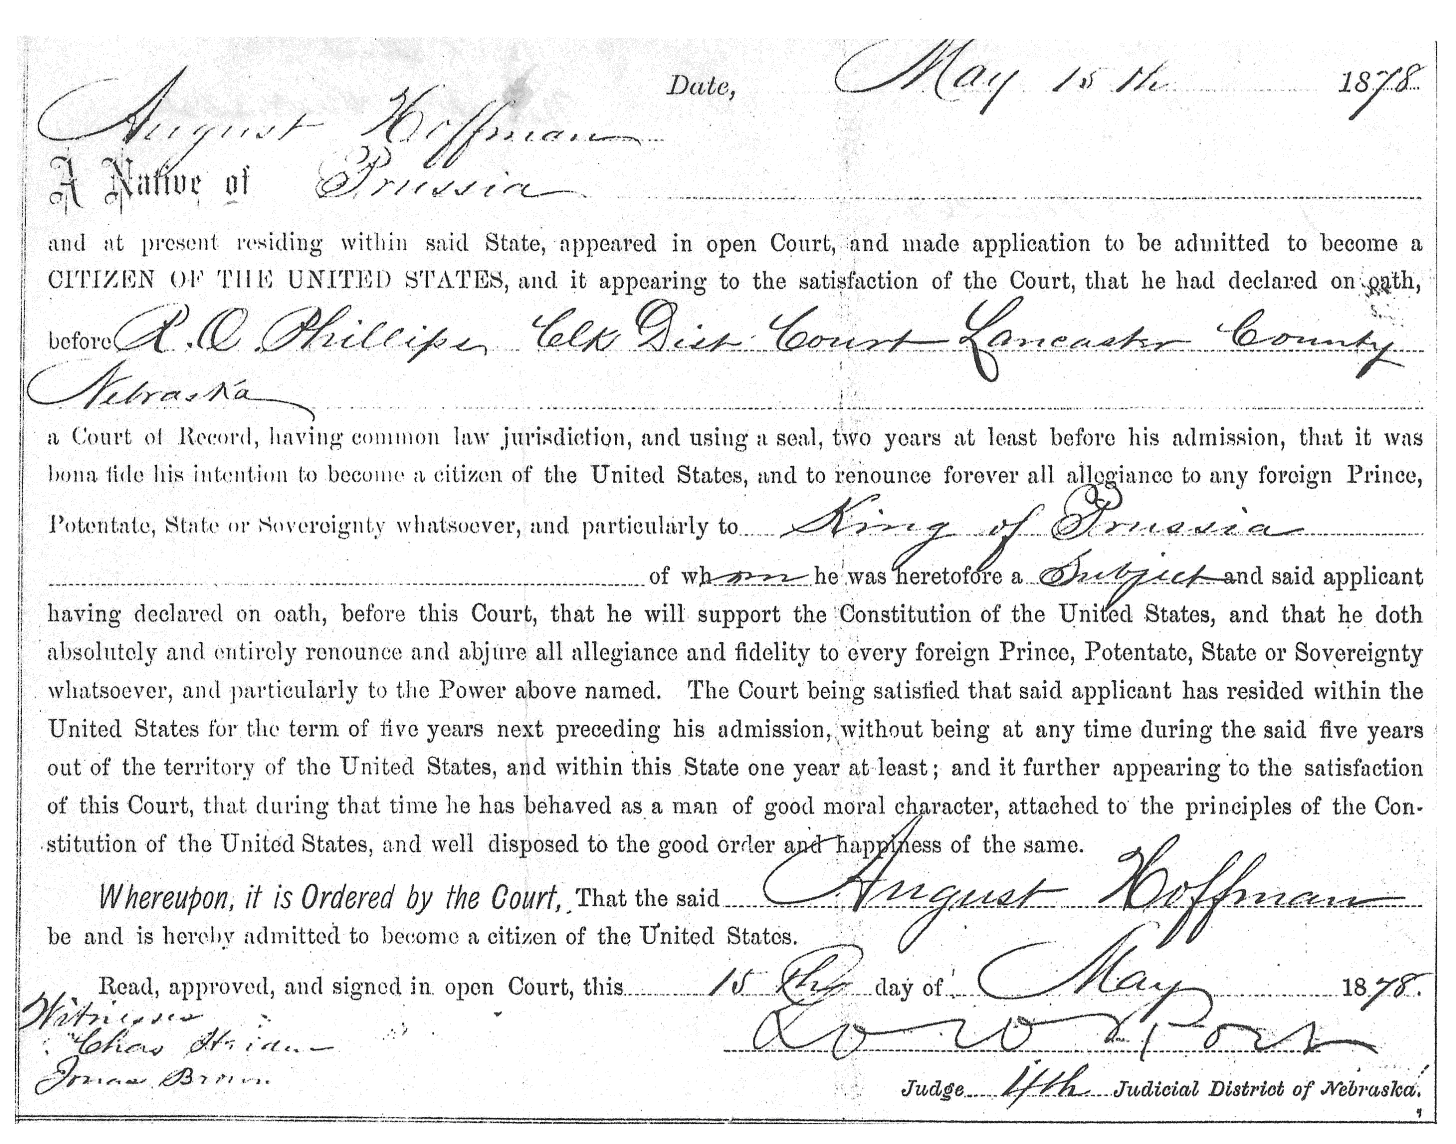 Date, May 15th 1878.
August Hoffman
A Native of Prussia
and at present residing within said State, appeared in open Court, and made application to be admitted to become a
CITIZEN OF THE UNITED STATES, and it appearing to the satisfaction of the Court, that he had declared on oath,
before R. O. Phillips Clk Dist Court Lancaster County
Nebraska
a Court of Record, having common law jurisdiction, and using a seal, two years at least before his admission, that it was
bona fide his intention to become a citizen of the United States, and to renounce forever all allegiance to any foreign Prince,
Potentate, State or Sovereignty whatsoever, and particularly to King of Prussia
of whom he was heretofore a Subject and said applicant
having declared on oath, before this Court, that he will support the Constitution of the United States, and that he doth
absolutely and entirely renounce and abjure all allegiance and fidelity to every foreign Prince, Potentate, State or Sovereignty
whatsoever, and particularly to the Power above named. The Court being satisfied that said applicant has resided within the
United States for the term of five years next preceding his admission, without being at any time during the said five years
out of the territory of the United States, and within this State one year at least; and it further appearing to the satisfaction
of this Court, that during that time he has behaved as a man of good moral character, attached to the principles of the Con-
stitution of the United States, and well disposed to the good order and happiness of the same.
Whereupon, it is Ordered by the Court, That the said August Hoffman
be and is hereby admitted to become a citizen of the United States.
Read, approved, and signed in open Court, this 15th day of May 1878.
Witnesses
Chas
Jonas Brown
Post
Judge 4th Judicial District of Nebraska.